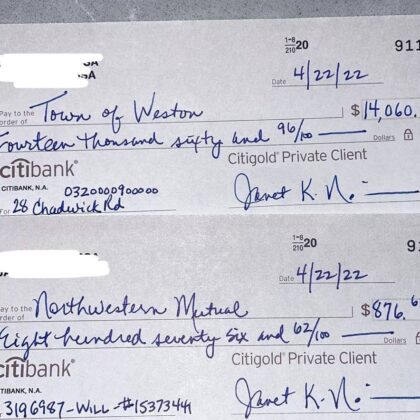 1-8
210 20
911
Date 4/22/22
Pay to the order of Town of Weston $14,060.
Fourteen thousand sixty and 96/100 Dollars
citibank® Citigold® Private Client
CITIBANK, N.A. 032000900000
For 28 Chadwick Rd Janet K. N.
1-8
210 20
Date 4/22/22
Pay to the order of Northwestern Mutual $876.6
Eight hundred seventy six and 62/100 Dollars
citibank® Citigold® Private Client
CITIBANK, N.A.
3196987-Will-#15373441 Janet K. N.